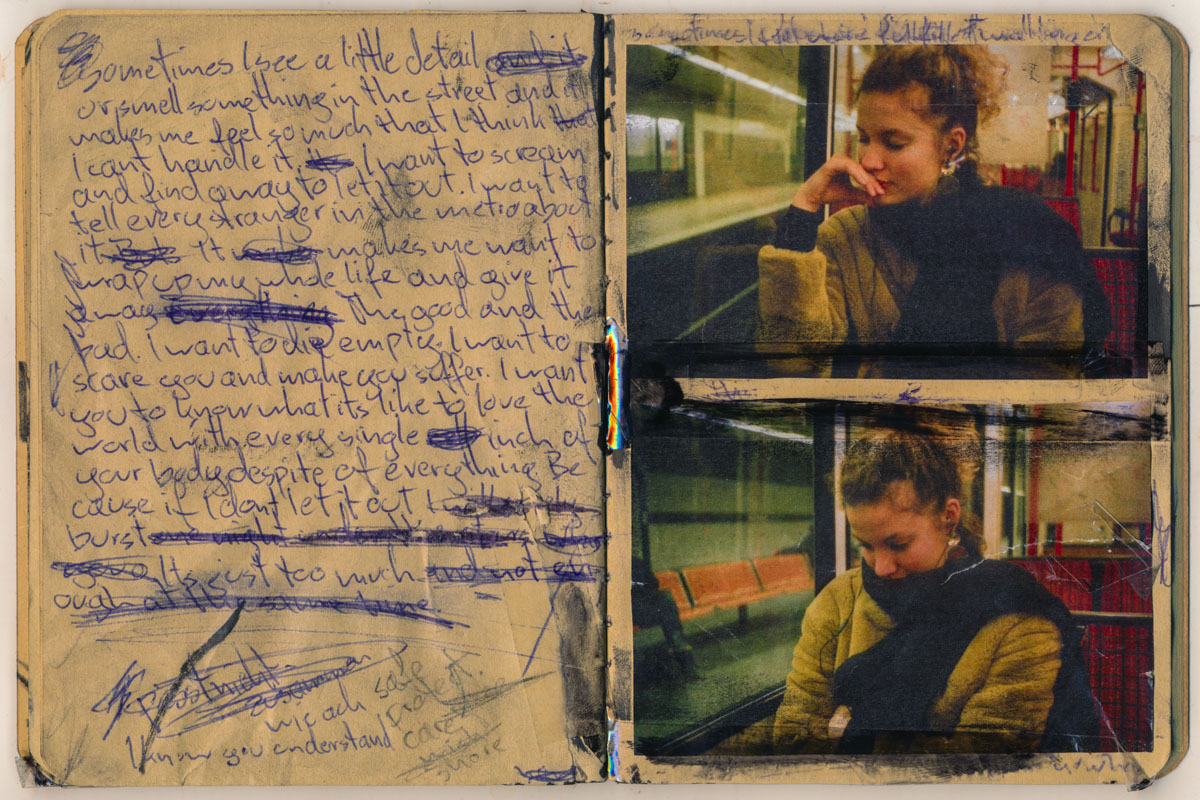 Sometimes I see a little detail and it
or smell something in the street and it
makes me feel so much that I think that
I cant handle it. I want to scream
and find a way to let it out. I want to
tell every stranger in the metro about
it. But It makes me want to
wrap up my whole life and give it
away everything The good and the
bad. I want to die empty. I want to
scare you and make you suffer. I want
you to know what its like to love the
world with every single inch of
your body despite of everything. Be
cause if I dont let it out I
burst
Its just too much and not en
ough at the same time
safe
I know you understand care
more
sometimes I